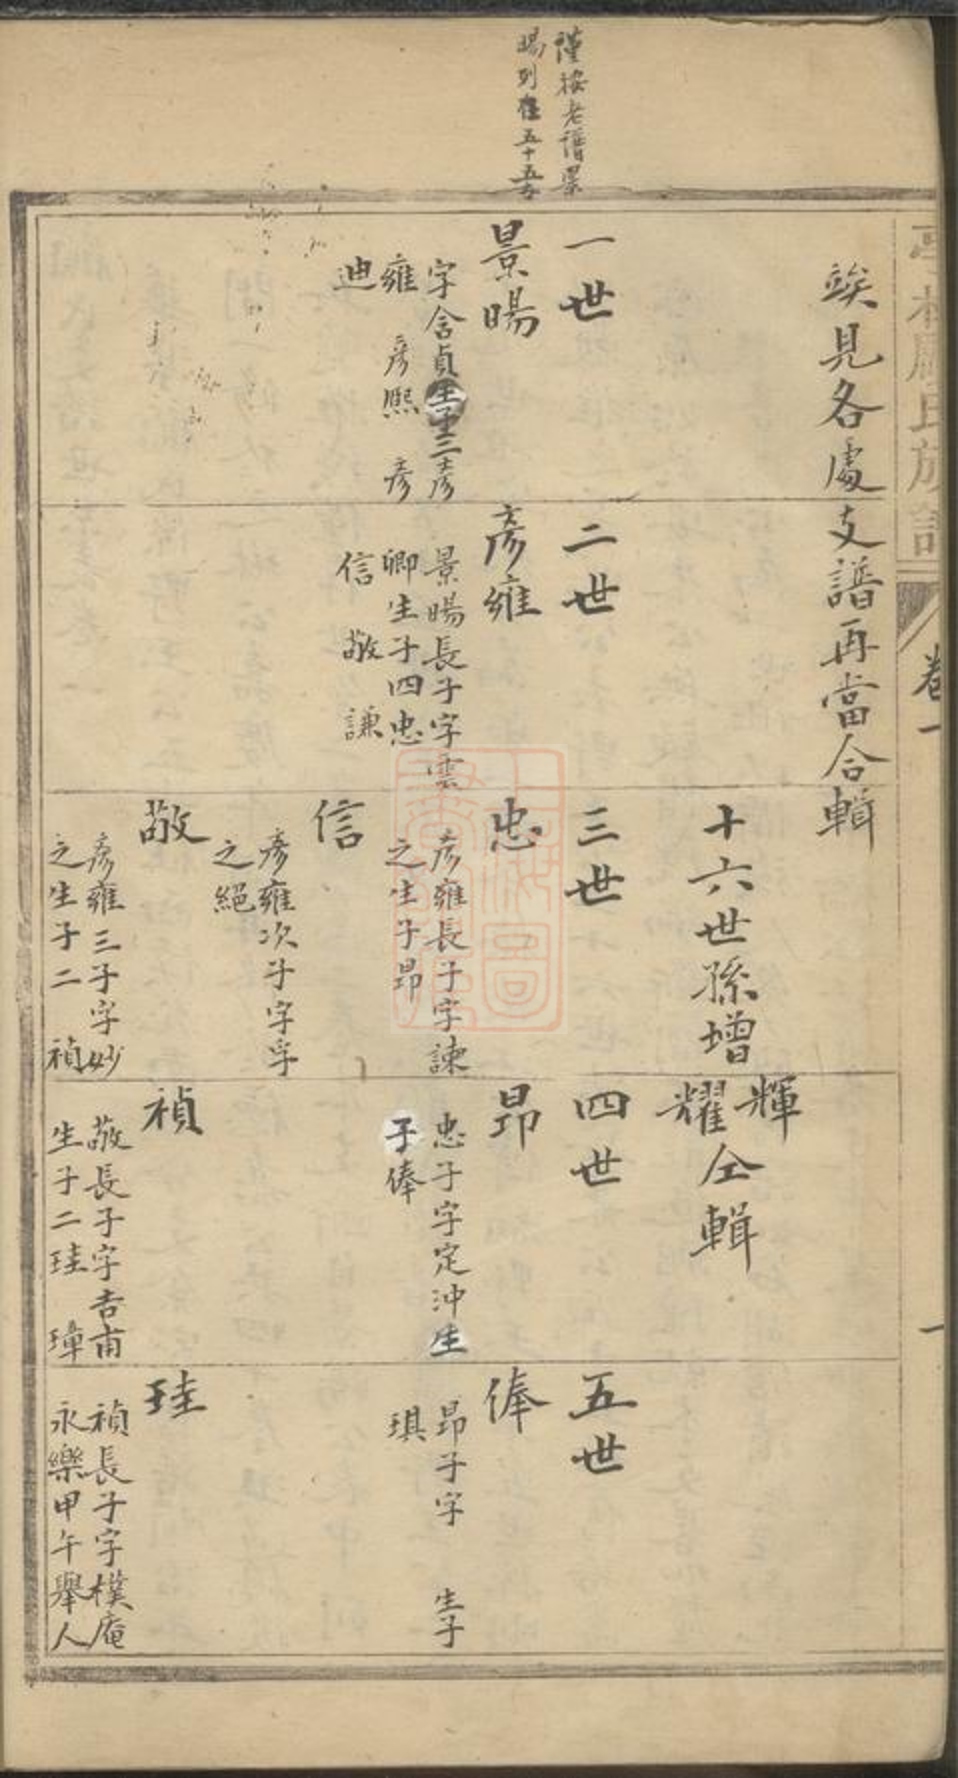 謹按老譜景
暘列在五十五世
卷一
一
俟見各處支譜再當合輯
十六世孫增
輝
耀
仝輯
一世
景暘
字含貞生子三彥
雍 彥熙 彥
迪
二世
彥雍
景暘長子字雲
卿生子四忠
信 敬 謙
三世
忠
彥雍長子字諫
之生子昂
信
彥雍次子字孚
之絕
敬
彥雍三子字妙
之生子二 禎
四世
昂
忠子字定沖生
子俸
禎
敬長子字吉甫
生子二珪 璋
五世
俸
昂子字 生子
琪
珪
禎長子字樸庵
永樂甲午舉人